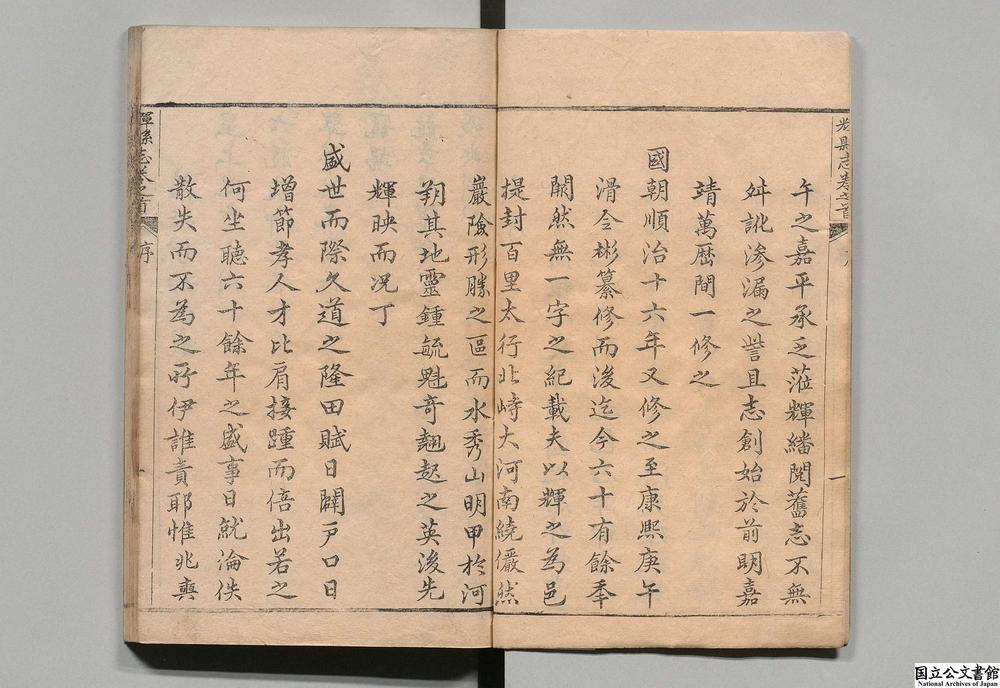 午之嘉平承乏蒞輝繙閱舊志不無
舛訛渗漏之誉且志創始於前明嘉
靖萬歷間一修之
國朝順治十六年又修之至康熙庚午
滑令彬纂修而後迄今六十有餘季
闕然無一字之紀載夫以輝之為邑
提封百里太行北峙大河南繞儼然
巖險形勝之區而水秀山明甲於河
朔其地靈鍾毓魁奇翹起之英後先
輝映而况丁
盛世而際久道之隆田賦日闢戶口日
增節孝人才比肩接踵而倍出若之
何坐聽六十餘年之盛事日就淪佚
散失而不為之所伊誰責耶惟兆奭
輝縣志卷之首
序
一
国立公文書館
National Archives of Japan